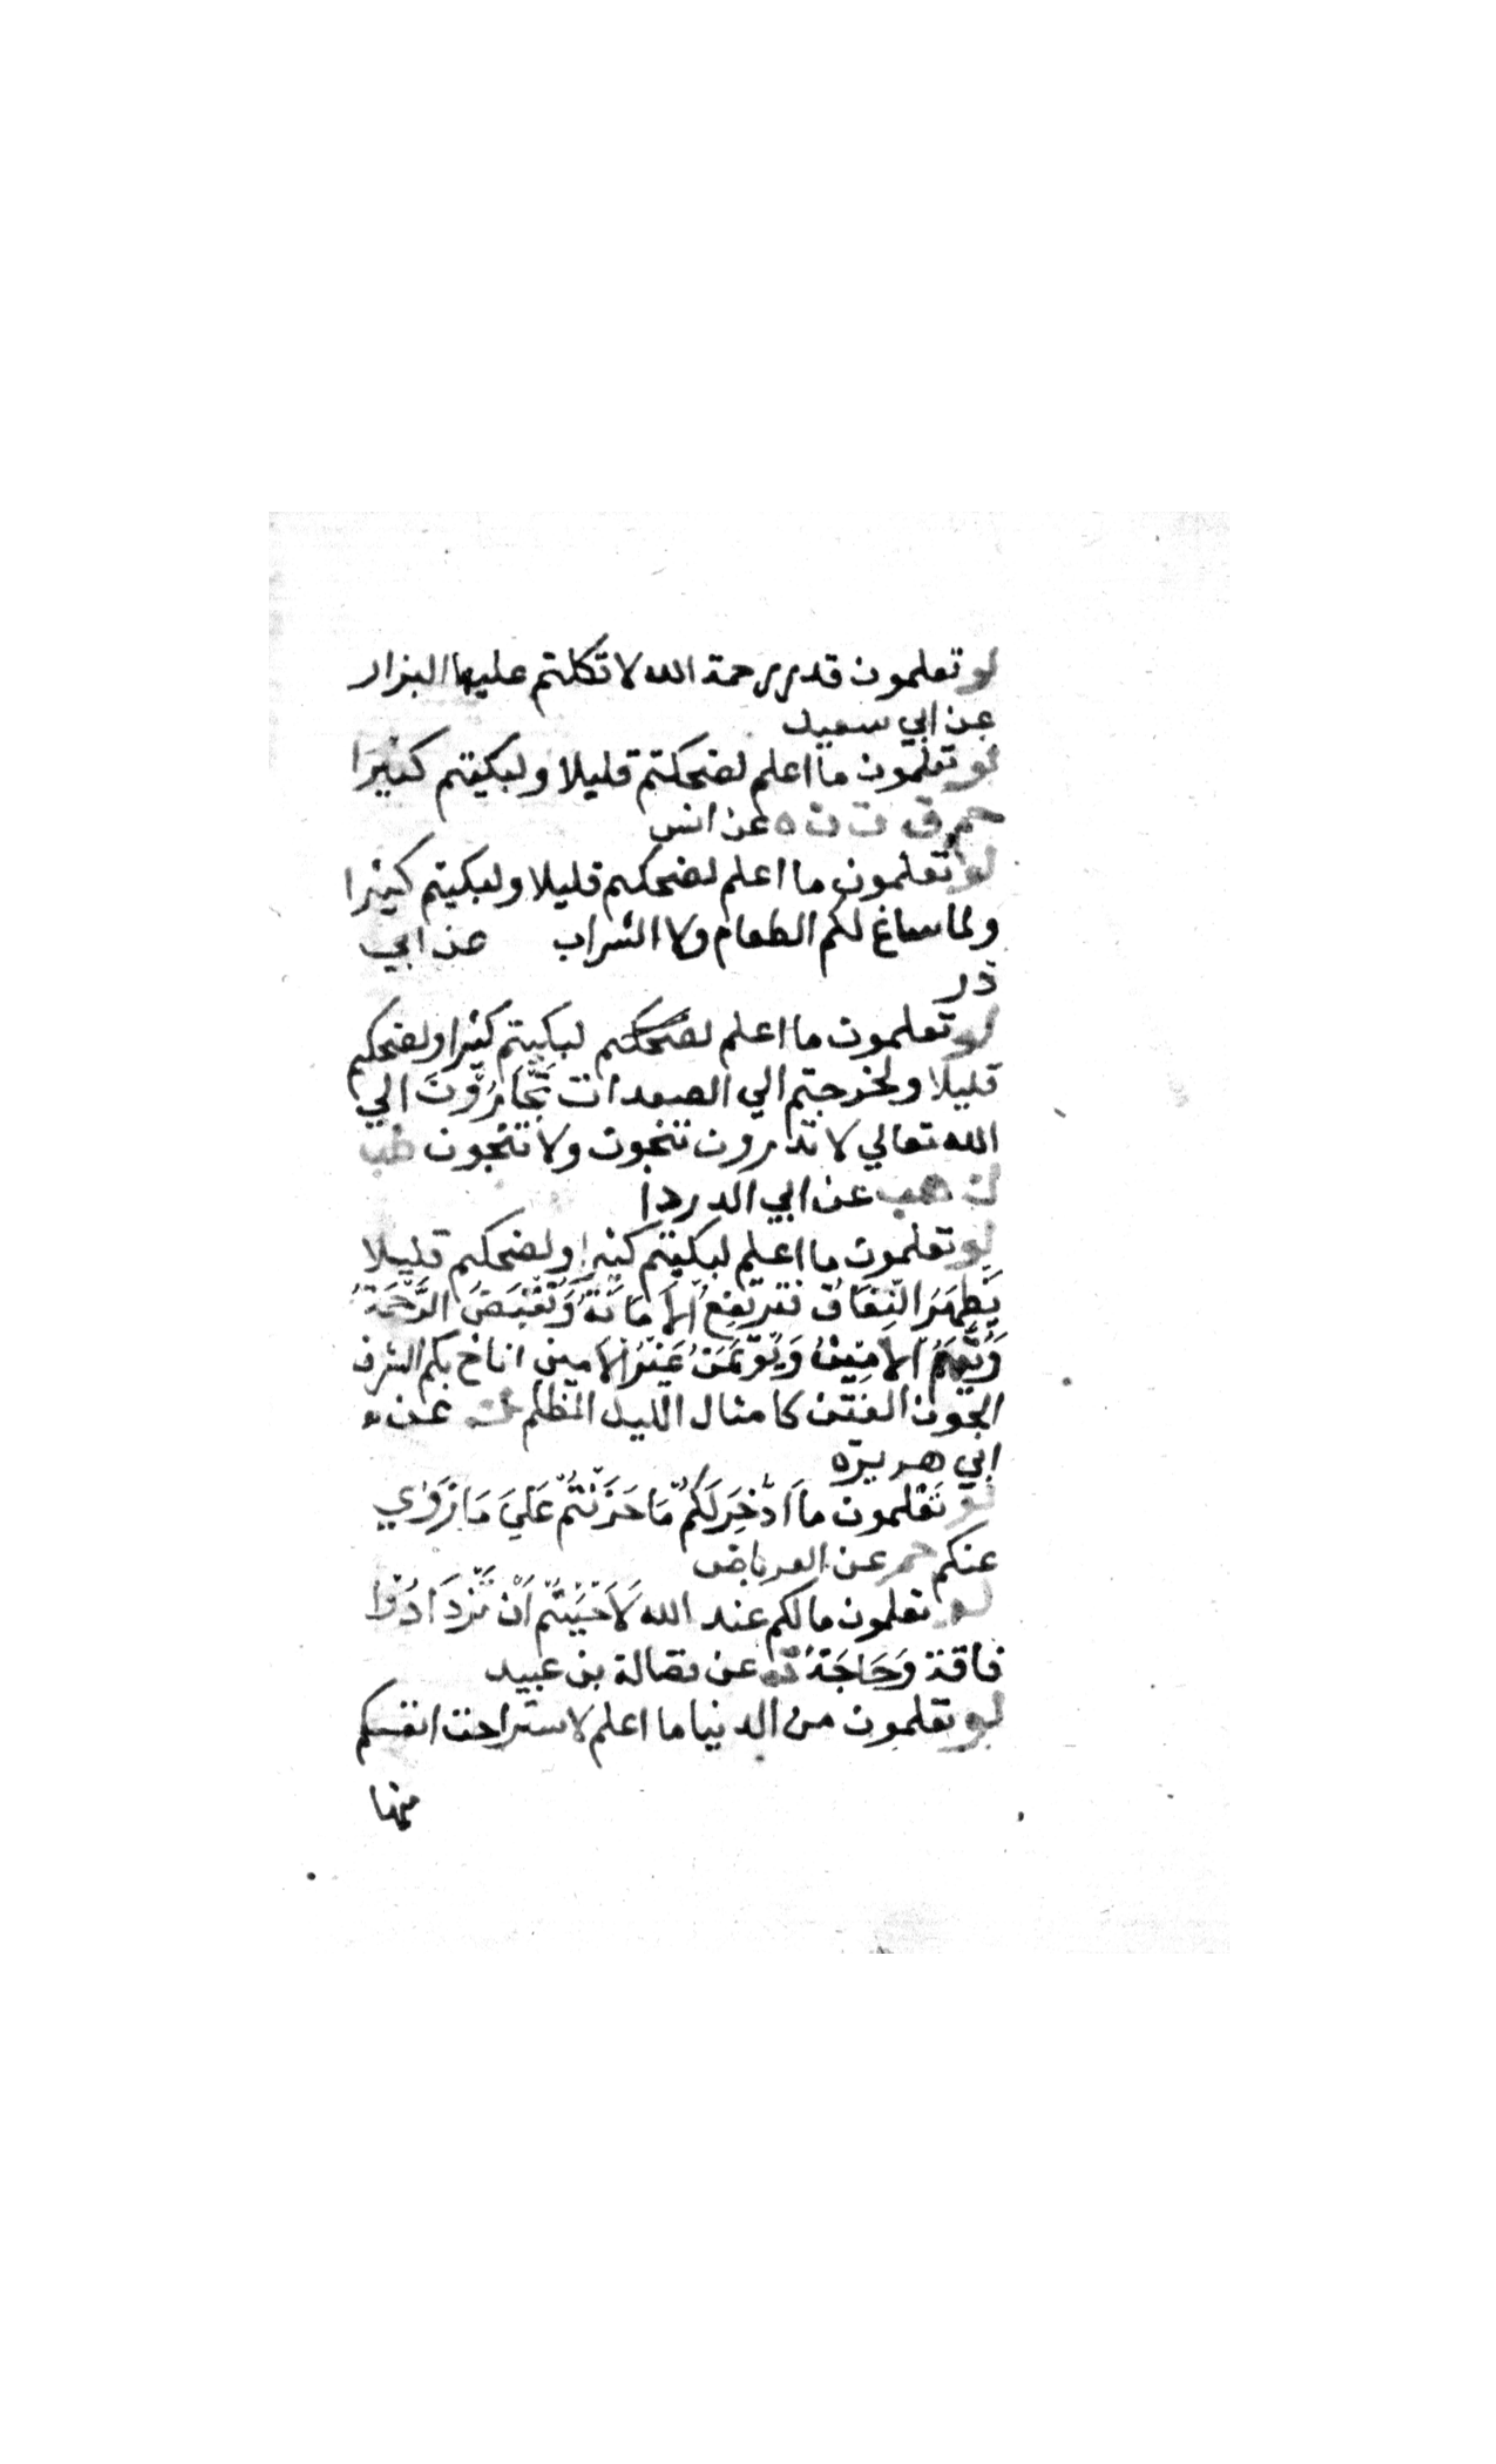 لو تعلمون قدر رحمة الله لاتكلتم عليها البزار
عن ابي سعيد
لو تعلمون ما اعلم لضحكتم قليلا ولبكيتم كثيرا
حم ق ت ن ه عن انس
لو تعلمون ما اعلم لضحكتم قليلا ولبكيتم كثيرا
ولما ساغ لكم الطعام ولا الشراب عن ابي
ذر
لو تعلمون ما اعلم لضحكتم لبكيتم كثيرا ولضحكتم
قليلا ولخرجتم الي الصعدات تَجْأَرُوْنَ الي
الله تعالي لا تدرون تنجون ولا تنجون طب
ك هب عن ابي الدردا
لو تعلمون ما اعلم لبكيتم كثيرا ولضحكتم قليلا
يَظهَرُ النِفَاقُ وَتَرتَفِعُ الاَمَانَةُ وَتُقْبَضُ الرَّحْمَةُ
وَيُتَّهَمُ الاَمِينُ وَيُؤتَمَنُ غَيْرُ الاَمين اناخ بكم الشرف
الجون الفتن كامثال الليل المظلم ك عن
ابي هريرة
لو تَعْلمون ما اَدُّخِرَ لَكُمْ مَا حَزَنْتُمْ عَلَيَ مَا زُوِيَ
عنكم حم عن العرباض
لو تعلمون مالكم عند الله لَاَحْبَبْتُمْ اَنْ تَزْدَادُوْا
فاقة وَحَاجَةً ت عن فضالة بن عبيد
لو تعلمون من الدنيا ما اعلم لاستراحت انفسكم
منها